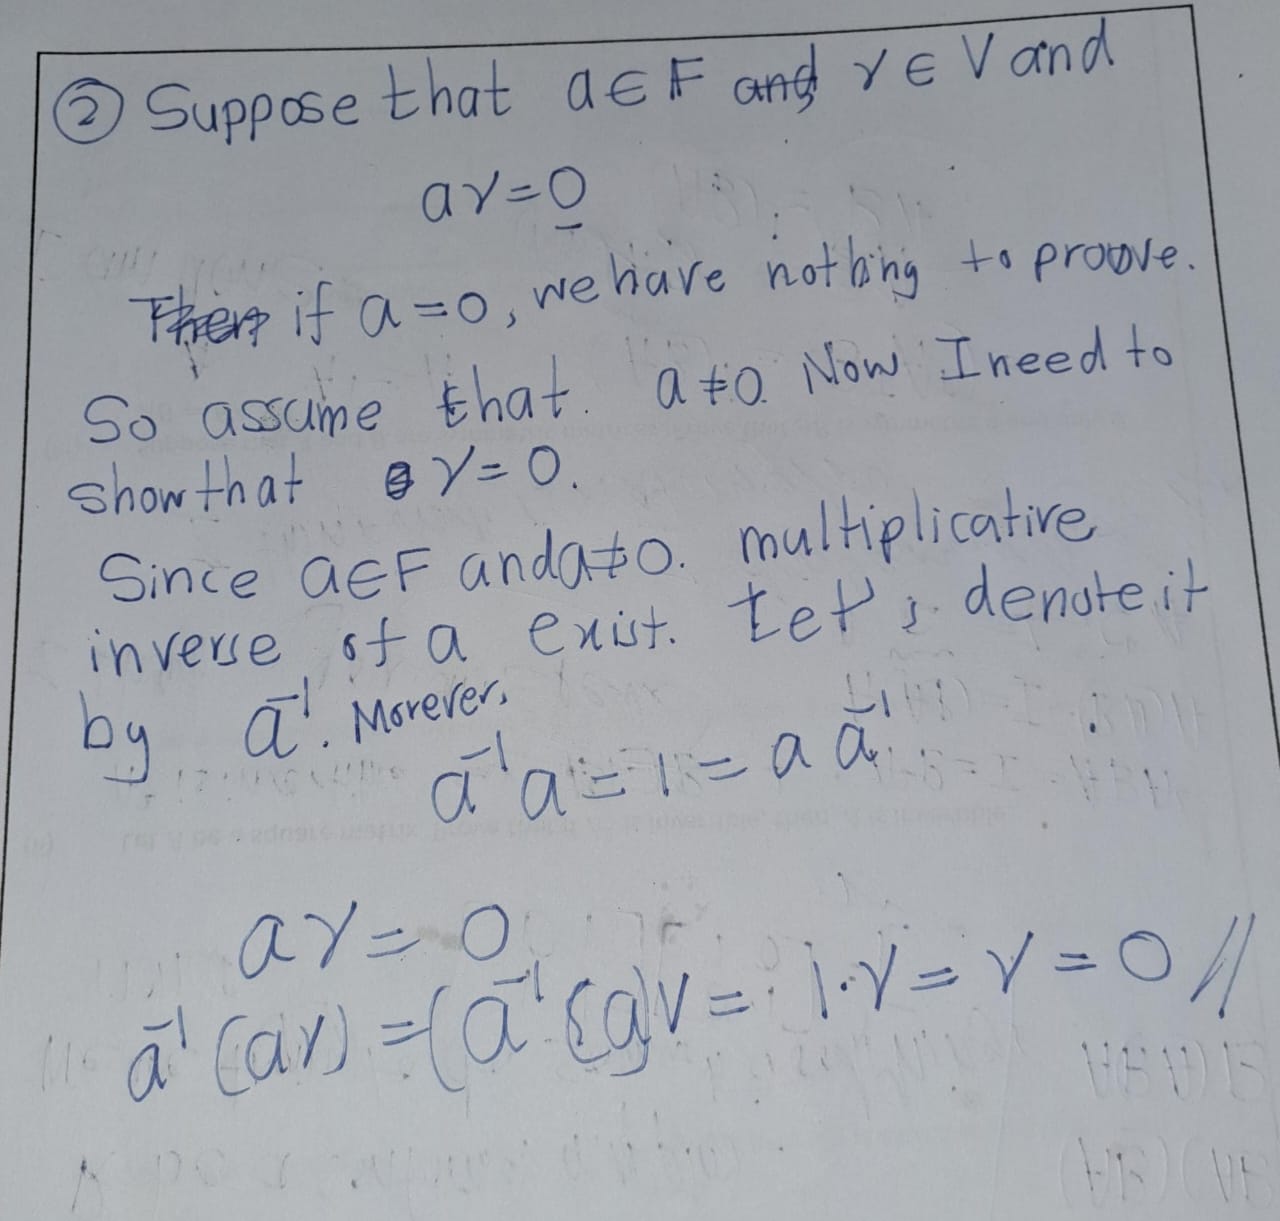 ② Suppose that a ∈ F and v ∈ V and
av = 0
Then if a = 0, we have nothing to proove.
So assume that. a ≠ 0. Now I need to
show that v = 0.
Since a ∈ F and a ≠ 0. multiplicative
inverse of a exist. Let's denote it
by a⁻¹. Morever,
a⁻¹a = 1 = a a⁻¹.
av = 0
a⁻¹(av) = (a⁻¹(a)v = 1·v = v = 0 //